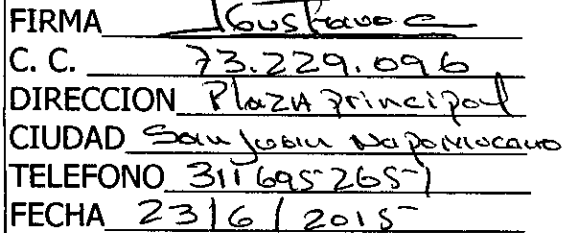 FIRMA Gustavo C
C. C. 73.229.096
DIRECCION Plaza principal
CIUDAD San Juan Nepomuceno
TELEFONO 311 695 2657
FECHA 23/6/2015